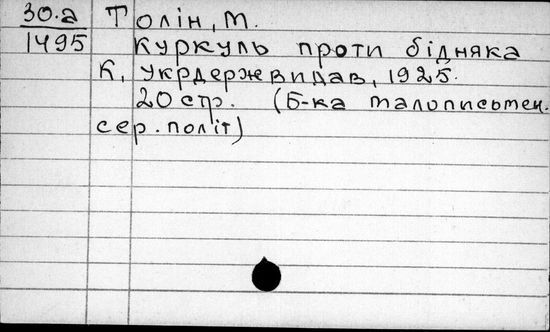 30.а Толін, М.
1495 Куркуль проти бідняка
К, Укрдержвидав, 1925.
20 стр. (Б-ка малописьмен.
сер. політ)